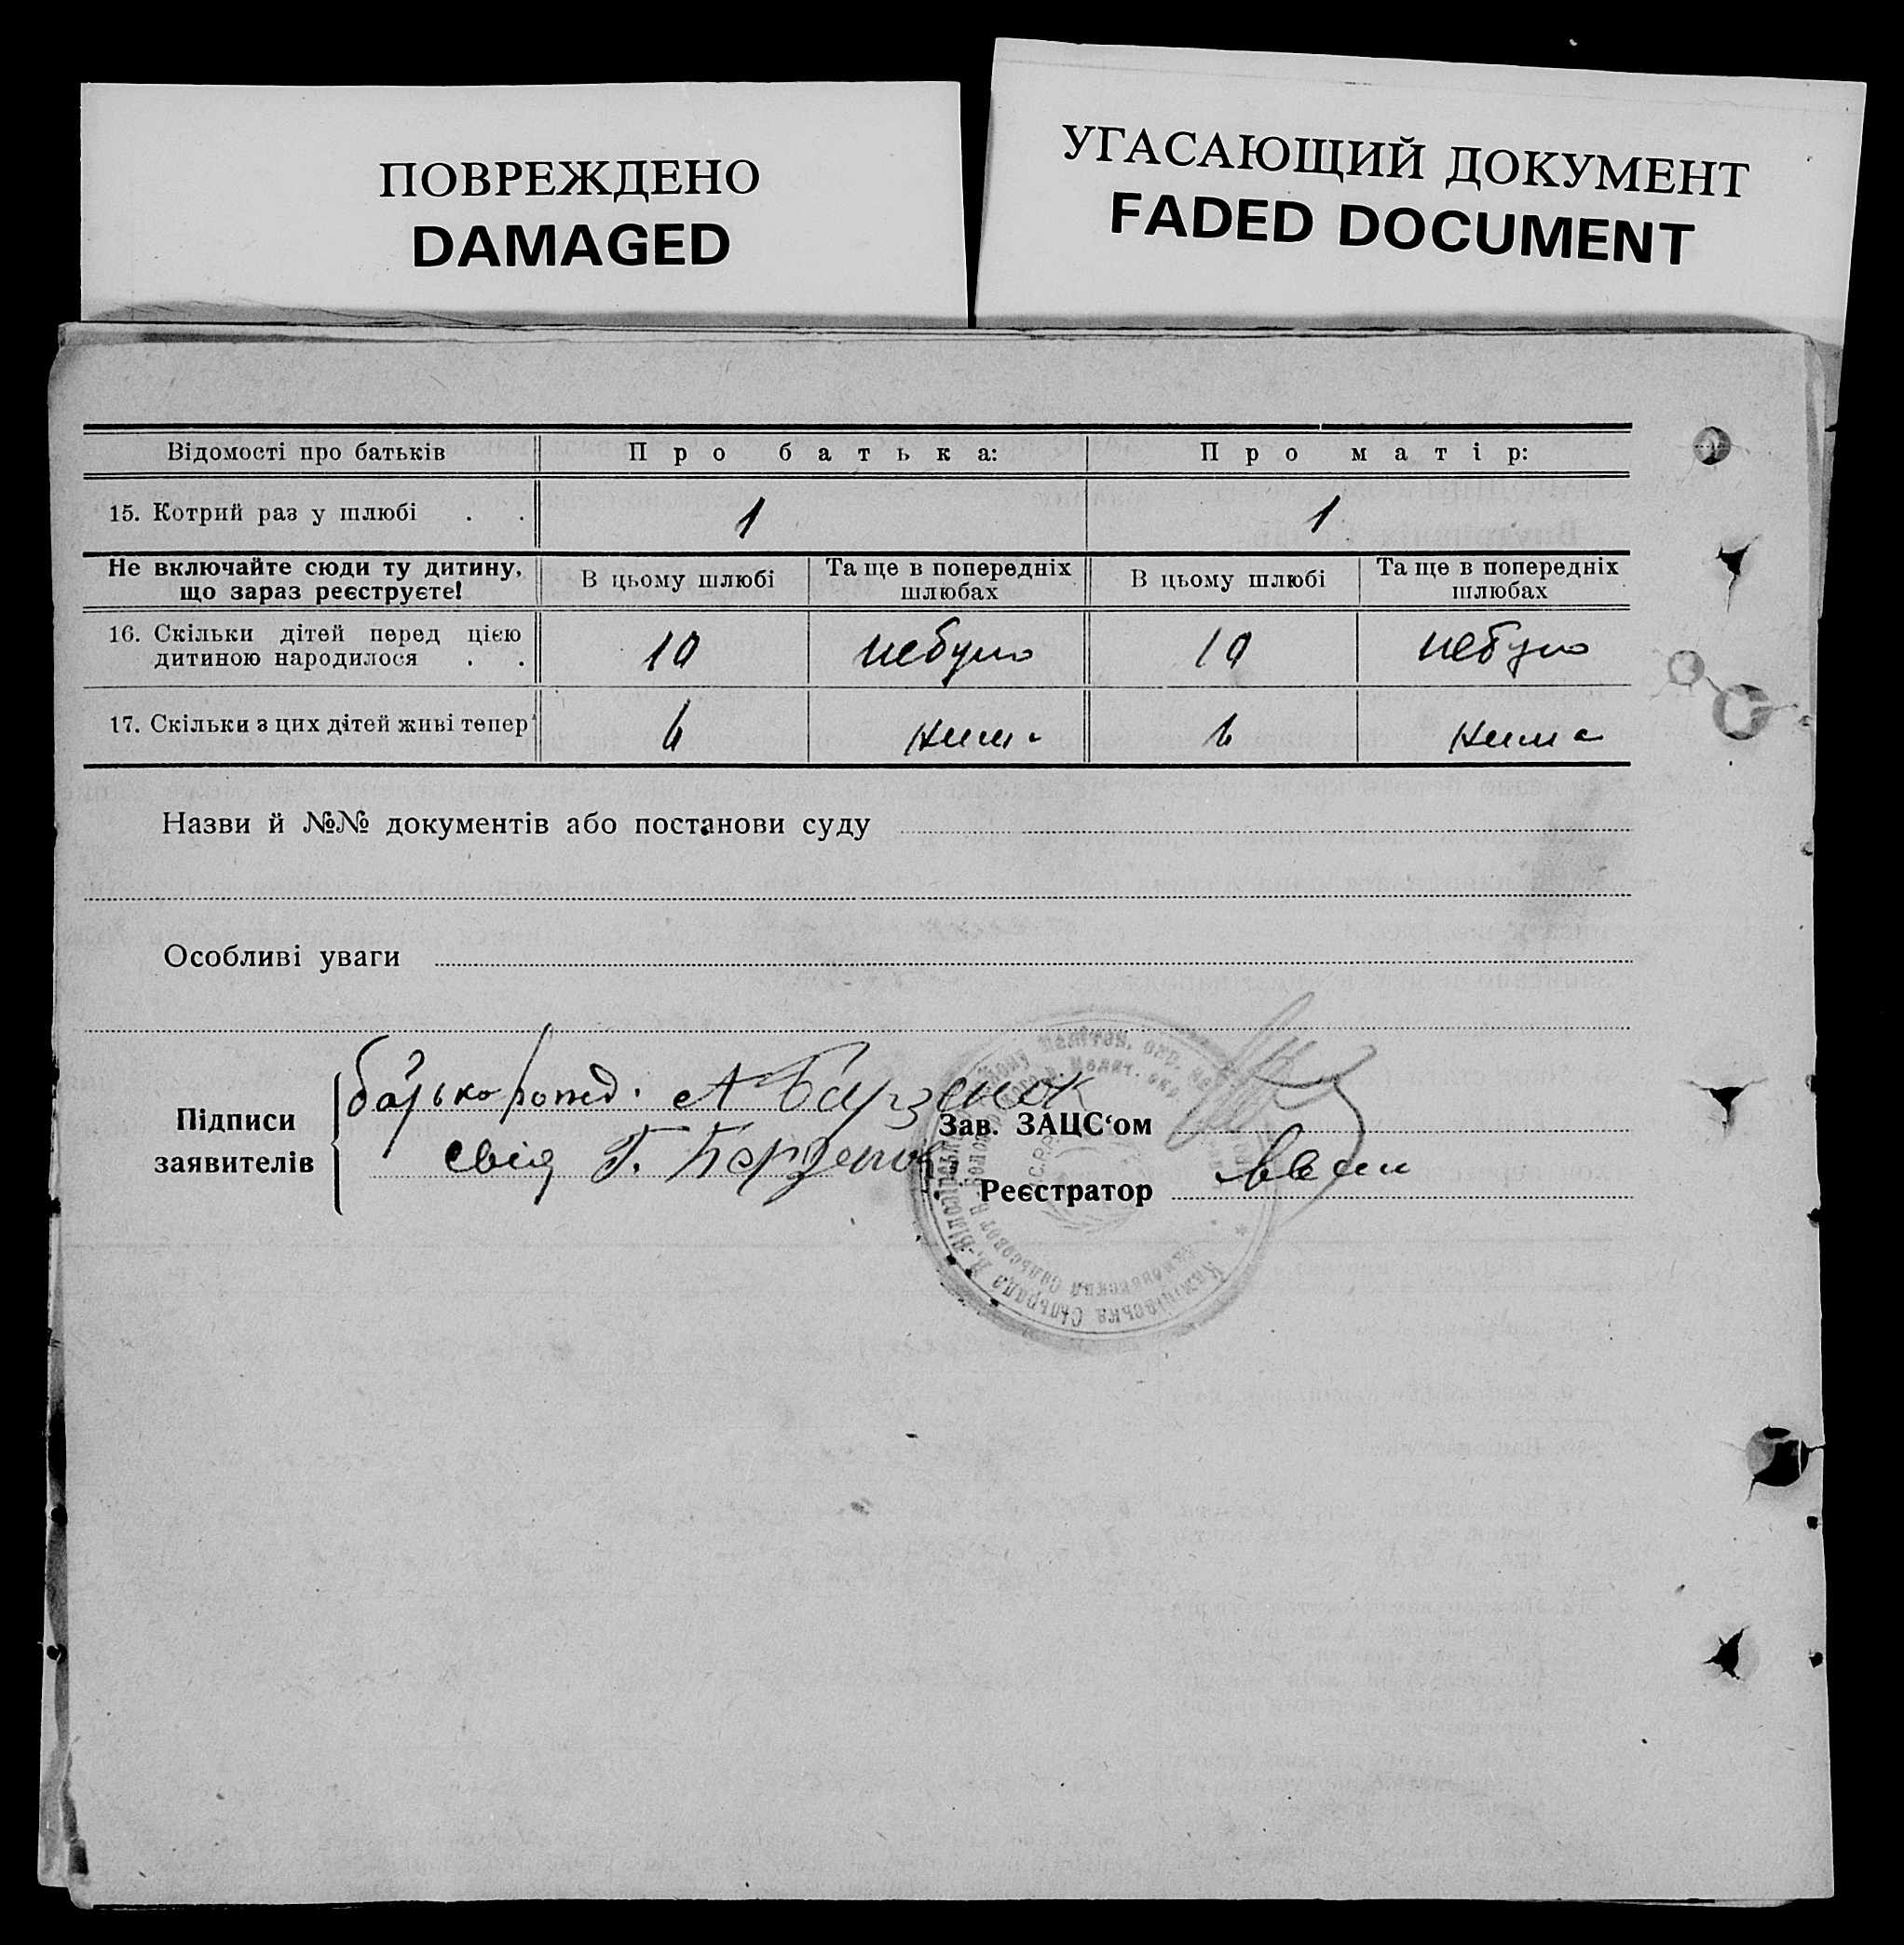 ПОВРЕЖДЕНО
DAMAGED
УГАСАЮЩИЙ ДОКУМЕНТ
FADED DOCUMENT
Відомості про батьків Про батька: Про матір:
15. Котрий раз у шлюбі . . 1 1
Не включайте сюди ту дитину, що зараз реєструєте! В цьому шлюбі Та ще в попередніх шлюбах В цьому шлюбі Та ще в попередніх шлюбах
16. Скільки дітей перед цією
дитиною народилося . . 10 небуло 10 небуло
17. Скільки з цих дітей живі тепер 6 нима 6 нима
Назви й №№ документів або постанови суду
Особливі уваги
Підписи заявителів
батько А
свід Г.
Зав. ЗАЦС‘ом
Реєстратор